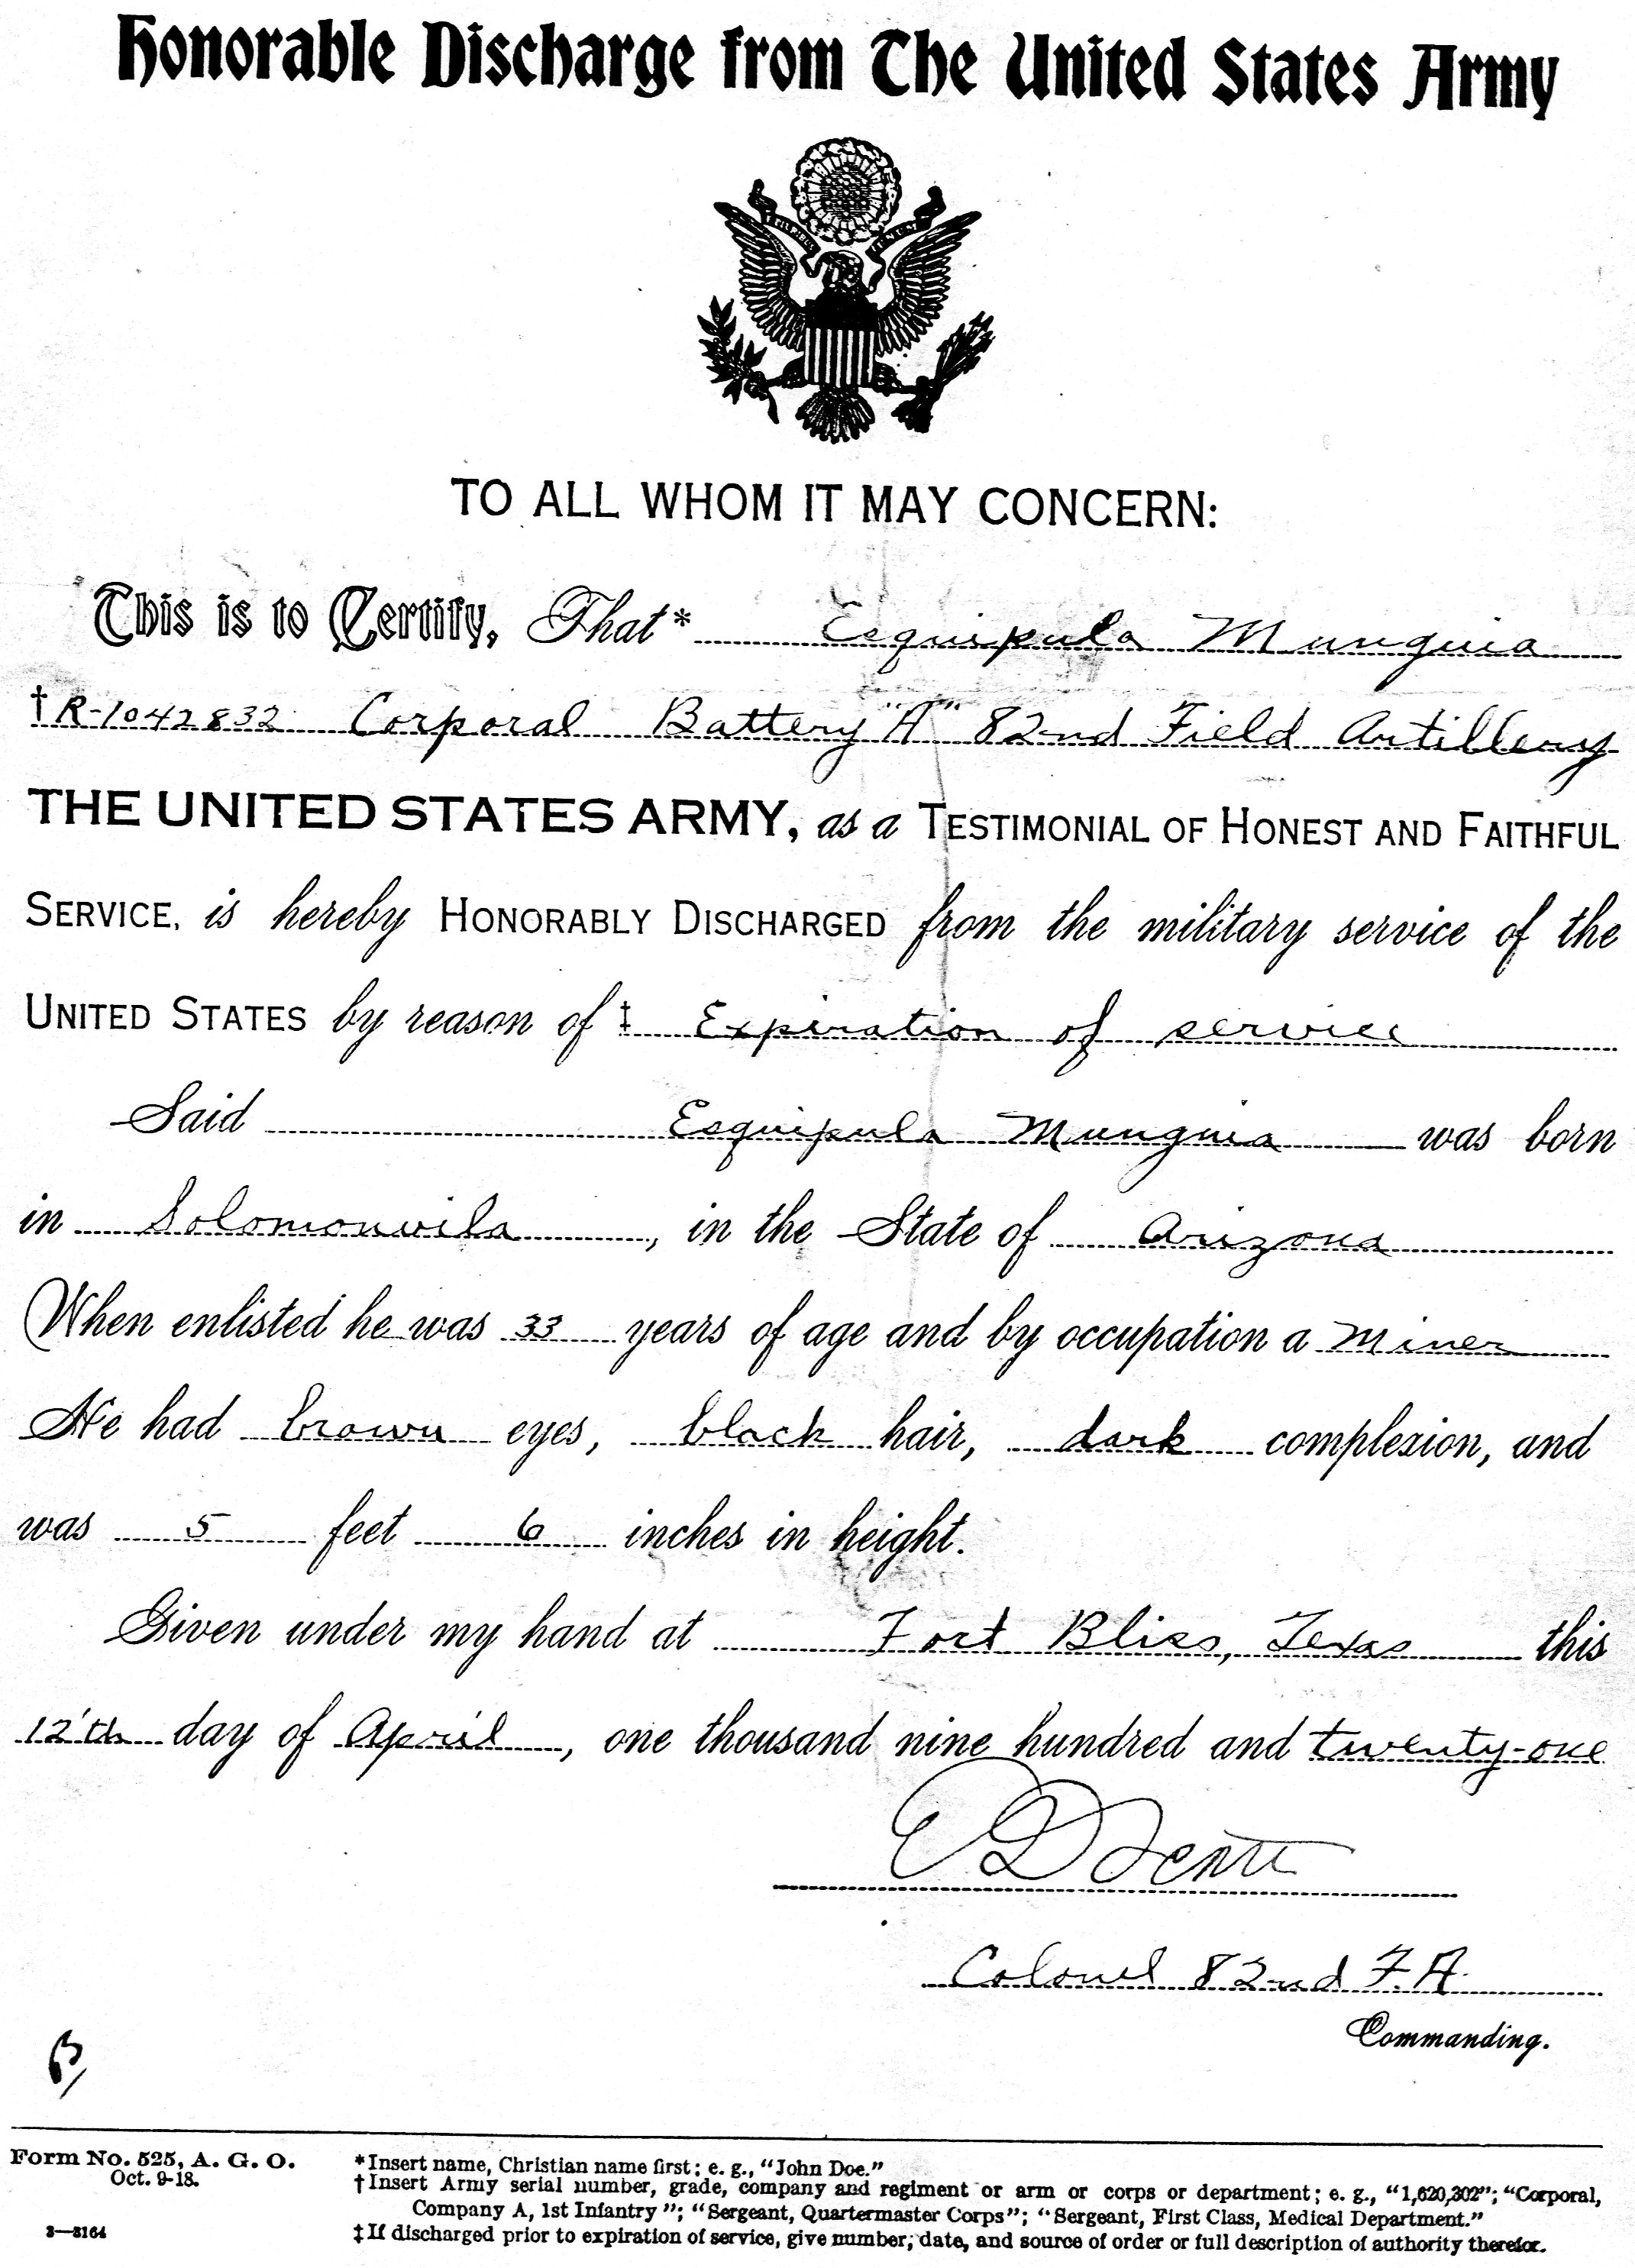 Honorable Discharge from The United States Army
TO ALL WHOM IT MAY CONCERN:
This is to Certify, That* Esquipula Munguia
†R-1042832 Corporal Battery "A" 82nd Field Artillery
THE UNITED STATES ARMY, as a TESTIMONIAL OF HONEST AND FAITHFUL
SERVICE, is hereby HONORABLY DISCHARGED from the military service of the
UNITED STATES by reason of ‡ Expiration of service
Said Esquipula Munguia was born
in Solomonvila, in the State of Arizona
When enlisted he was 33 years of age and by occupation a Miner
He had brown eyes, black hair, dark complexion, and
was 5 feet 6 inches in height.
Given under my hand at Fort Bliss, Texas this
12'th day of April, one thousand nine hundred and twenty-one
Colonel 82nd F.A.
Commanding.
B
Form No. 525, A. G. O.
Oct. 9-18.
3—3164
*Insert name, Christian name first; e. g., "John Doe."
†Insert Army serial number, grade, company and regiment or arm or corps or department; e. g., "1,620,302"; "Corporal,
Company A, 1st Infantry"; "Sergeant, Quartermaster Corps"; "Sergeant, First Class, Medical Department."
‡If discharged prior to expiration of service, give number, date, and source of order or full description of authority therefor.